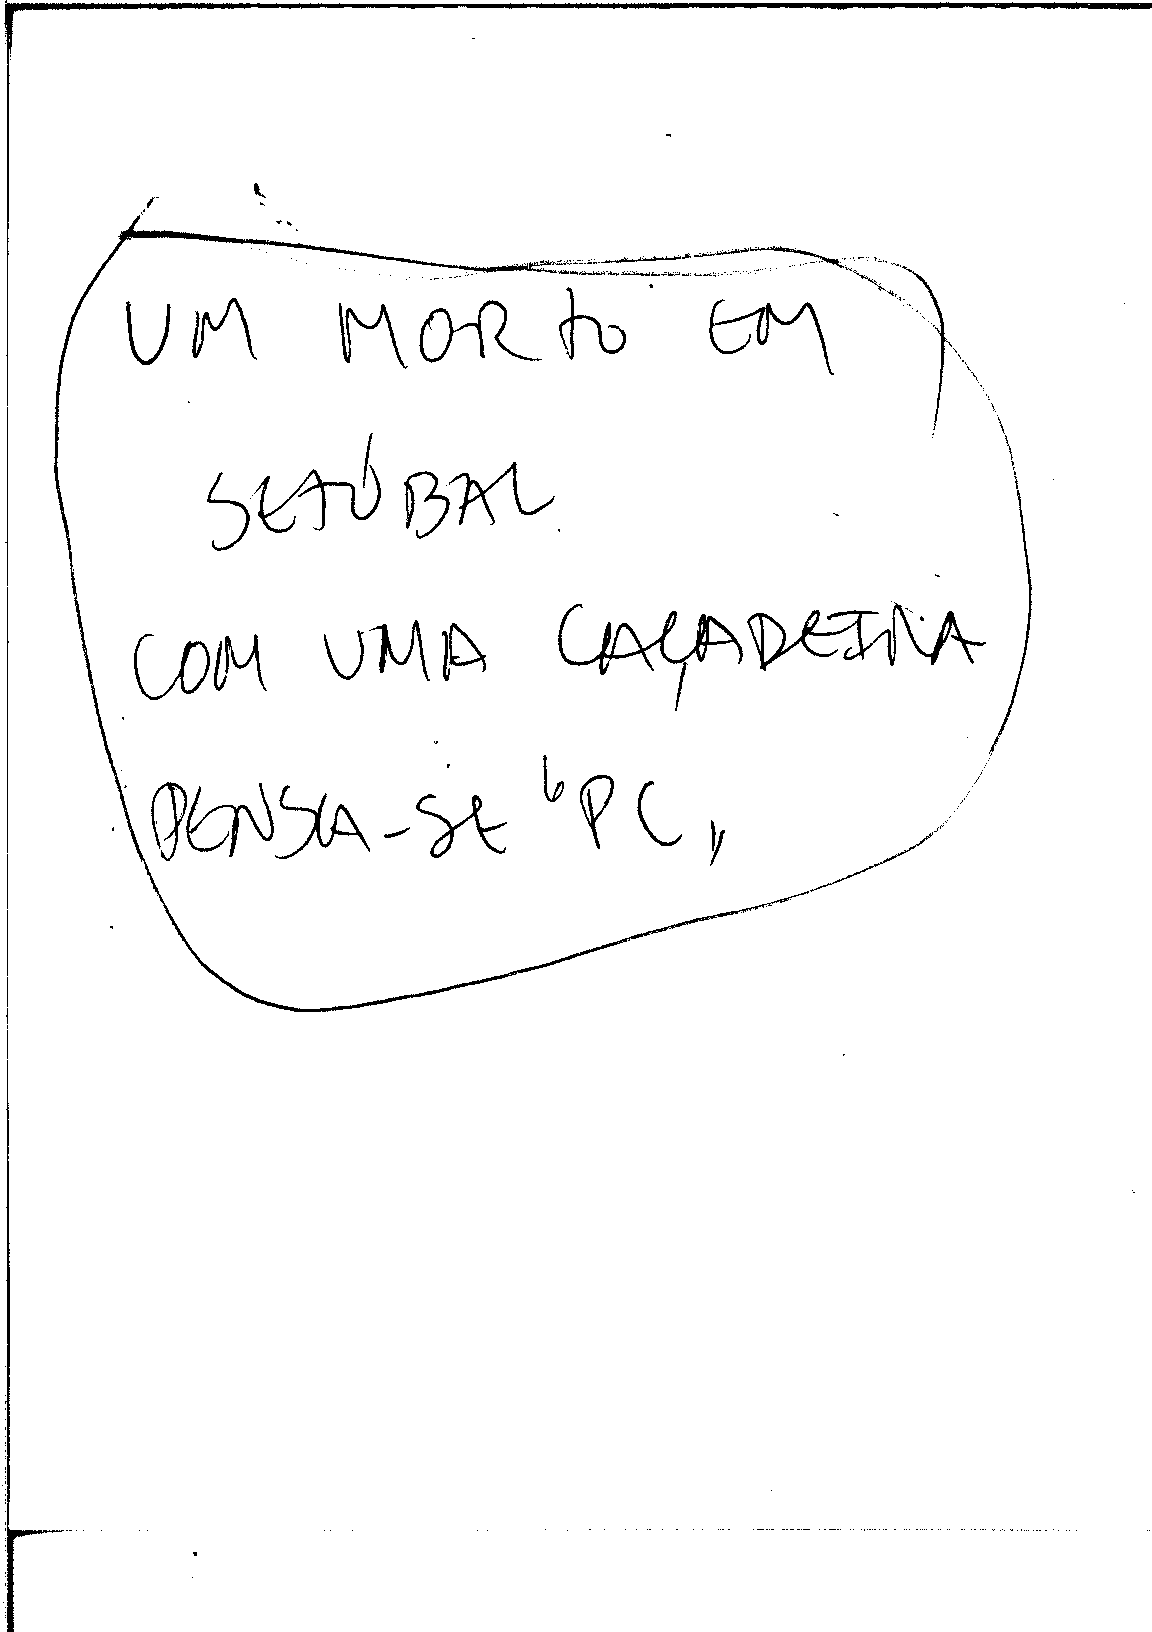 UM MORTO EM
SETÚBAL
COM UMA CAÇADEIRA
PENSA-SE "PC"